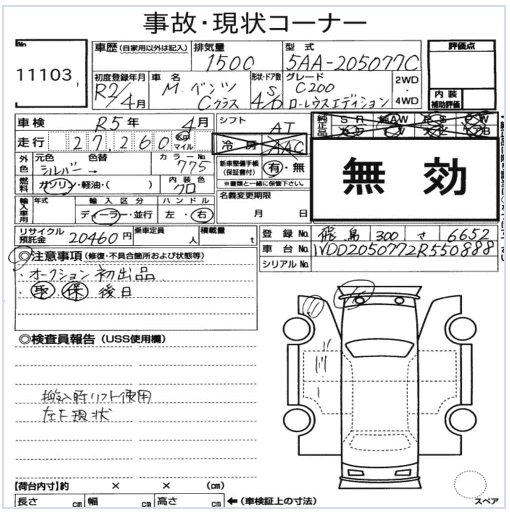 事故・現状コーナー
No.
11103
車歴 (自家用以外は記入)
排気量
1500
型式
5AA-205077C
評価点
初度登録年月
R2/4月
車名
M ベンツ Cクラス
形状・ドア数
S 4/D
グレード
C200 ローレウスエディション
2WD・4WD
内装補助評価
車検 R5年 4月
シフト AT
純正品 SR AW PS PW
走行 27,260 Km マイル
冷房 AAC
外色 元色 シルバー 色替 → カラーNo. 775
新車整備手帳(保証書付) 有・無
※書類と一緒に保管下さい。
無効
燃料 ガソリン・軽油・( ) 内装色 クロ
名義変更期限
月 日
輸入車用 年式 輸入区分 ディーラー・並行 ハンドル 左・右
リサイクル預託金 20460円 乗車定員 人 積載量 t
登録No. 飛鳥 300 さ 6652
車台No. WDD2050772R550888
シリアルNo.
◎注意事項 (修復・不具合箇所および状態等)
オークション初出品
取 保 後日
◎検査員報告 (USS使用欄)
搬入時リフト使用
左F現状
【荷台内寸】約 × × (cm)
長さ cm 幅 cm 高さ cm ←(車検証上の寸法)
スペア